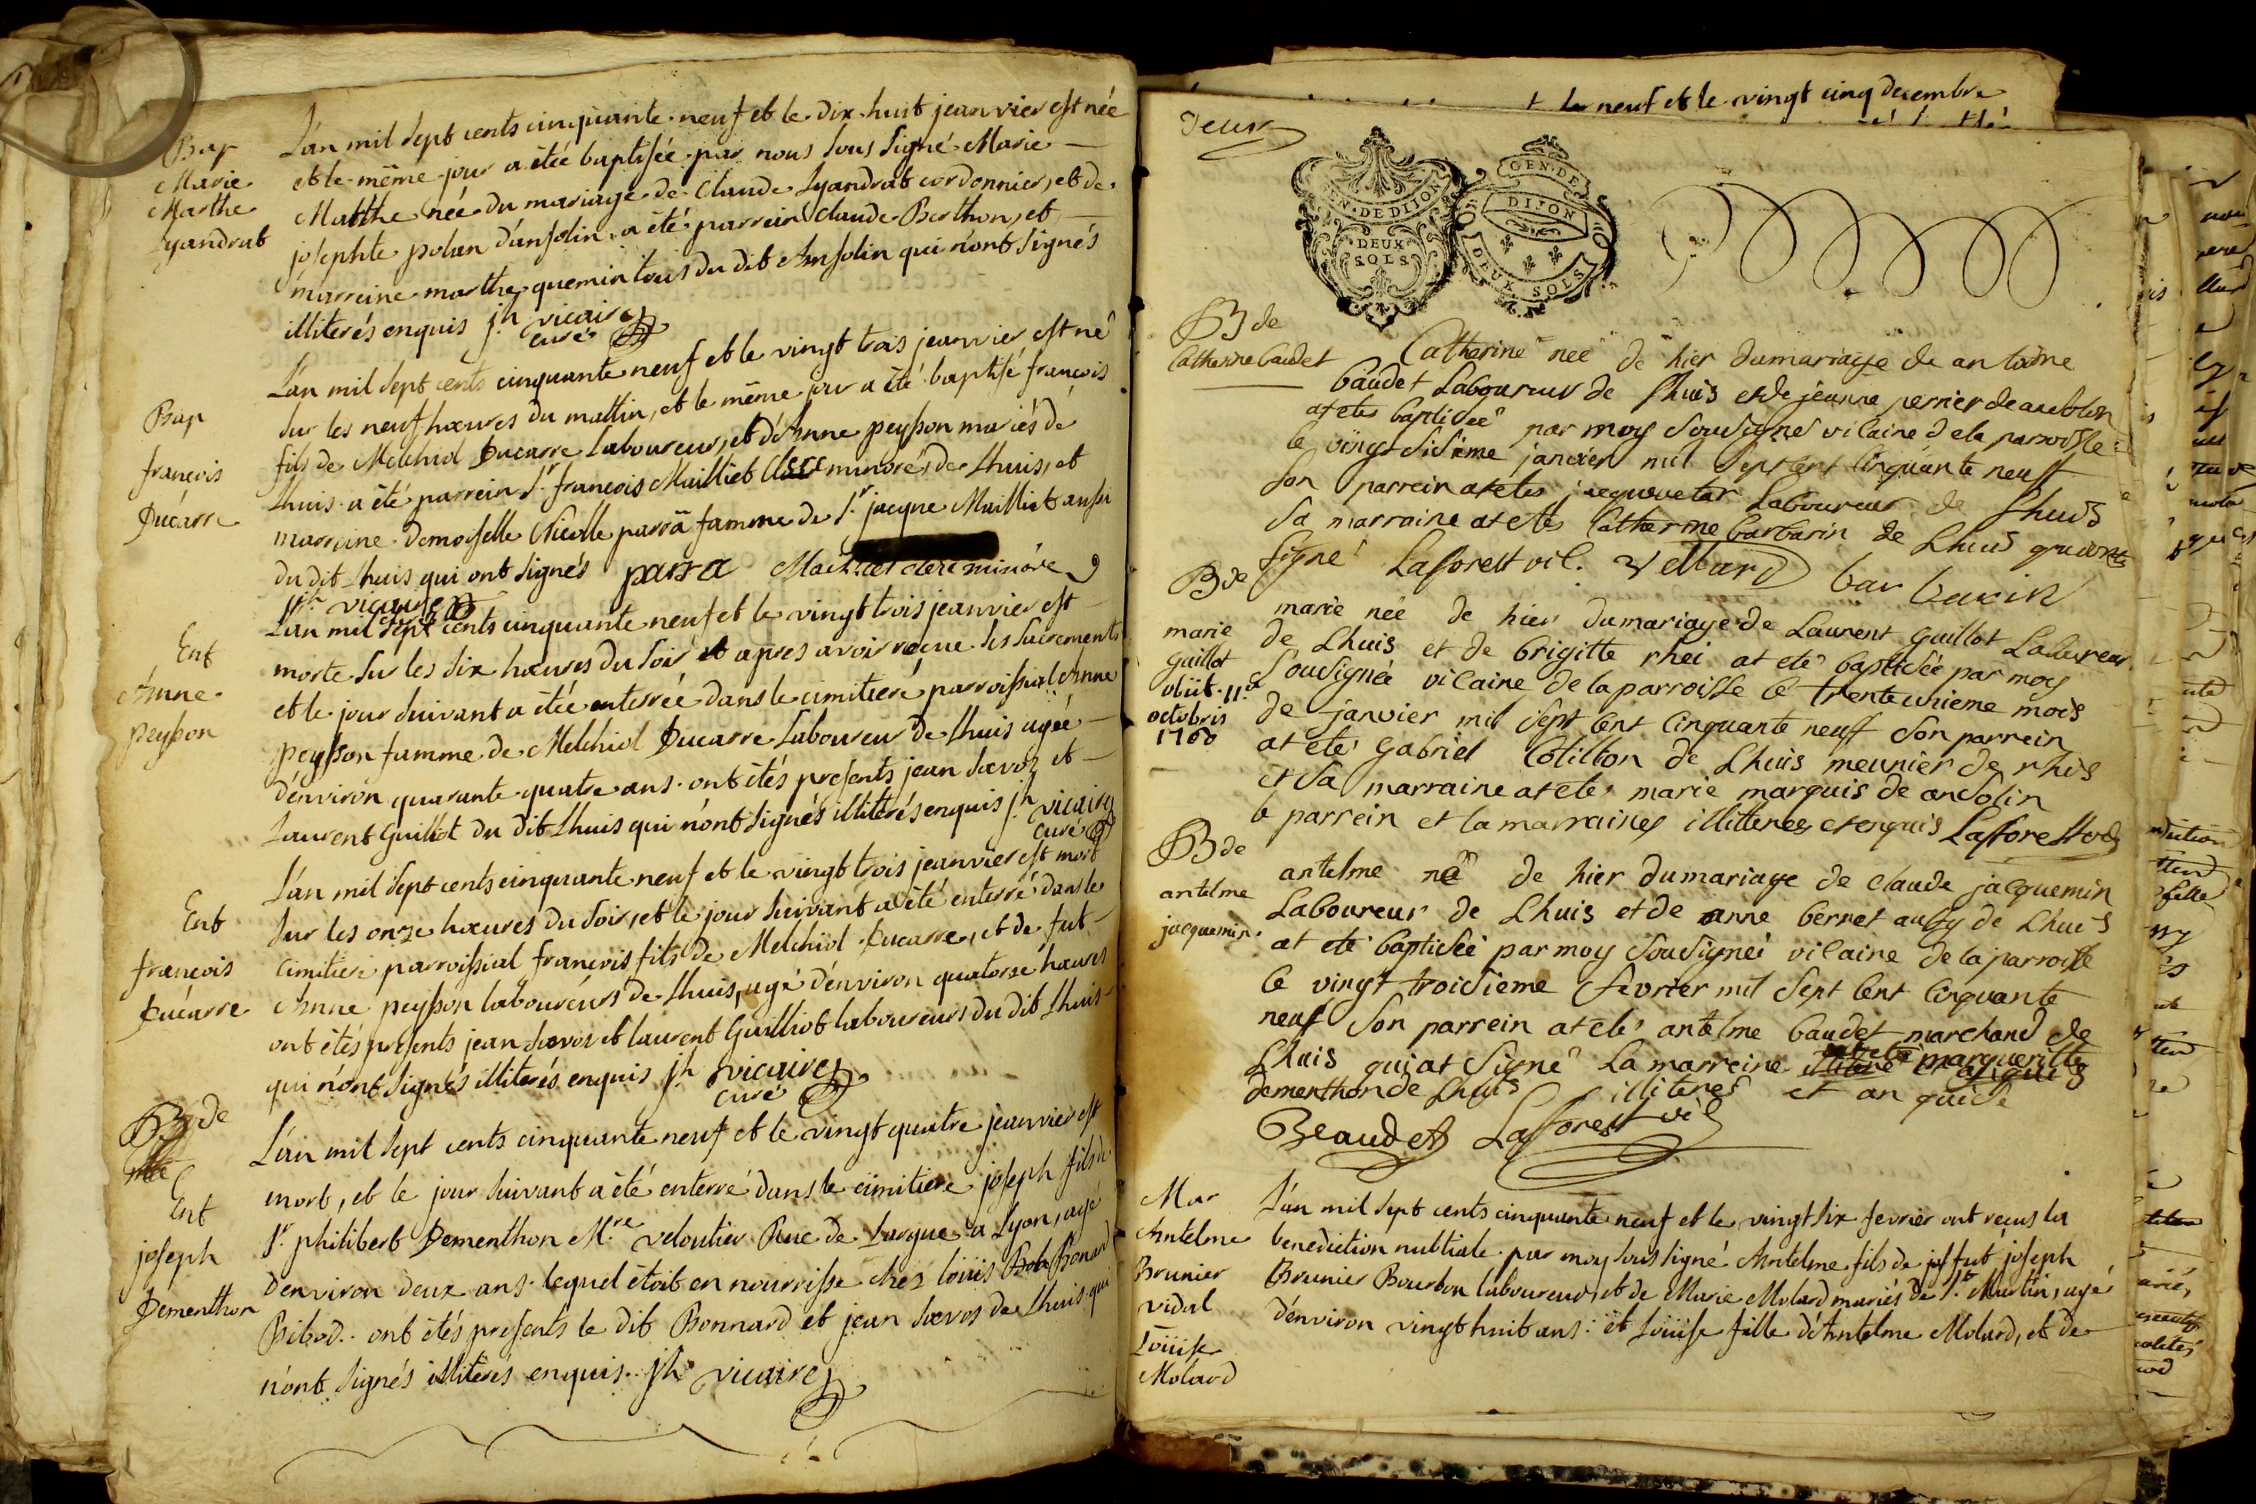 Bap
Marie
Marthe
Lyandrat
L'an mil sept cents cinquante neuf et le dix huit jeanvier est née
et le même jour a étée baptisée par nous sous signé Marie
Matthe née du mariage de Claude Lyandrat cordonnier, et de
josephte polan d'ansolin, a été parrein Claude Berthon, et
marreine marthe quemin tous du dit Ansolin qui n'ont signés
illiterés enquis jh vicaire
curé
Bap
françois
Ducarre
L'an mil sept cents cinquante neuf et le vingt trois jeanvier est né
sur les neuf hœures du mattin, et le même jour a été baptisé françois
fils de Melchiol Ducarre laboureur, et d'Anne peysson mariés de
Lhuis a été parrein Sr. françois Mailliet Clerc minoré, de Lhuis, et
marreine demoiselle Nicolle parra famme de Sr. jacque Mailliet aussi
du dit Lhuis qui ont signés parra Mailliet clerc minoré
jh vicaire
curé
Ent
Anne
peysson
L'an mil sept cents cinquante neuf et le vingt trois jeanvier est
morte sur les dix hœures du soir et apres avoir reçue les sacrements
et le jour suivant a étée enterrée dans le cimitiere parroissial Anne
peysson famme de Melchiol Ducarre laboureur de Lhuis agée
d'environ quarante quatre ans. ont étés presents jean Sœvoz et
Laurent Guilliot du dit Lhuis qui n'ont signés illiterés enquis jh vicaire
curé
Ent
françois
Ducarre
L'an mil sept cents cinquante neuf et le vingt trois jeanvier est mort
sur les onze hœures du soir, et le jour suivant a été enterré dans le
cimitiere parroissial françois fils de Melchiol Ducarre, et de fut
Anne peysson laboureurs de Lhuis, agé d'environ quatorze hœures
ont étés presents jean Sœvoz et laurent Guilliot laboureurs du dit Lhuis
qui n'ont signés illiterés enquis jh vicaire
curé
B de
Ent
joseph
Dementhon
L'an mil sept cents cinquante neuf et le vingt quatre jeanvier est
mort, et le jour suivant a été enterré dans le cimitiere joseph fils de
Sr. philibert Dementhon Mre. veloutier Rue de Bargue a Lyon, agé
d'environ deux ans. lequel étoit en nourrisse chés loüis Bonard
Ribod. ont étés presents le dit Bonnard et jean Sœvos de Lhuis qui
n'ont signés illiterés enquis. jh vicaire
neuf et le vingt cinq decembre
deux
GEN. DE DIJON
DEUX SOLS
GEN. DE
DIJON
DEUX SOLS
B de
Catherine baudet
Catherine née de hier du mariage de antoine
baudet Laboureur de Lhuis et de jeanne perrier de
at ete baptisée par moy Sousigné vicaire de la parroisse
le vingt sisieme janvier mil sept cent cinquante neuff
son parrein at ete Laboureur de Lhuis
sa marraine at ete Catherine barbarin de Lhuis qui ont
signé Lafforest vic. Vettard barbarin
B de
marie
guillot
obiit 11a
octobris
1760
marie née de hier du mariage de Laurent guillot Laboureur
de Lhuis et de brigitte rhei at eté baptisée par moy
Sousignée vicaire de la parroisse le trente unieme mois
de janvier mil sept cent cinquante neuff son parrein
at eté gabriel Cotillon de Lhuis meunier de rhis
et sa marraine at ete marie marquis de ansolin
le parrein et la marraines illitteres et enquis Lafforest vic
B de
antelme
jacquemin
antelme né de hier du mariage de claude jacquemin
Laboureur de Lhuis et de anne bernet aussy de Lhuis
at eté baptisée par moy Sousignée vicaire de la parroisse
le vingt troisieme fevrier mil sept cent cinquante
neuf son parrein at ete antelme baudet marchand de
Lhuis qui at signé La marreine at ete margueritte
dementhon de Lhuis illiteres et anquise
Beaudet Lafforest vic
Mar
Antelme
Brunier
vidal
Loüise
Molard
L'an mil sept cents cinquante neuf et le vingt six fevrier ont reçus la
benediction nubtiale par moy sous signé Antelme fils de jos fut joseph
Brunier Bourbon laboureur, et de Marie Molard mariés de St. Martin, agé
d'environ vingt huit ans : et Loüise fille d'Antelme Molard, et de